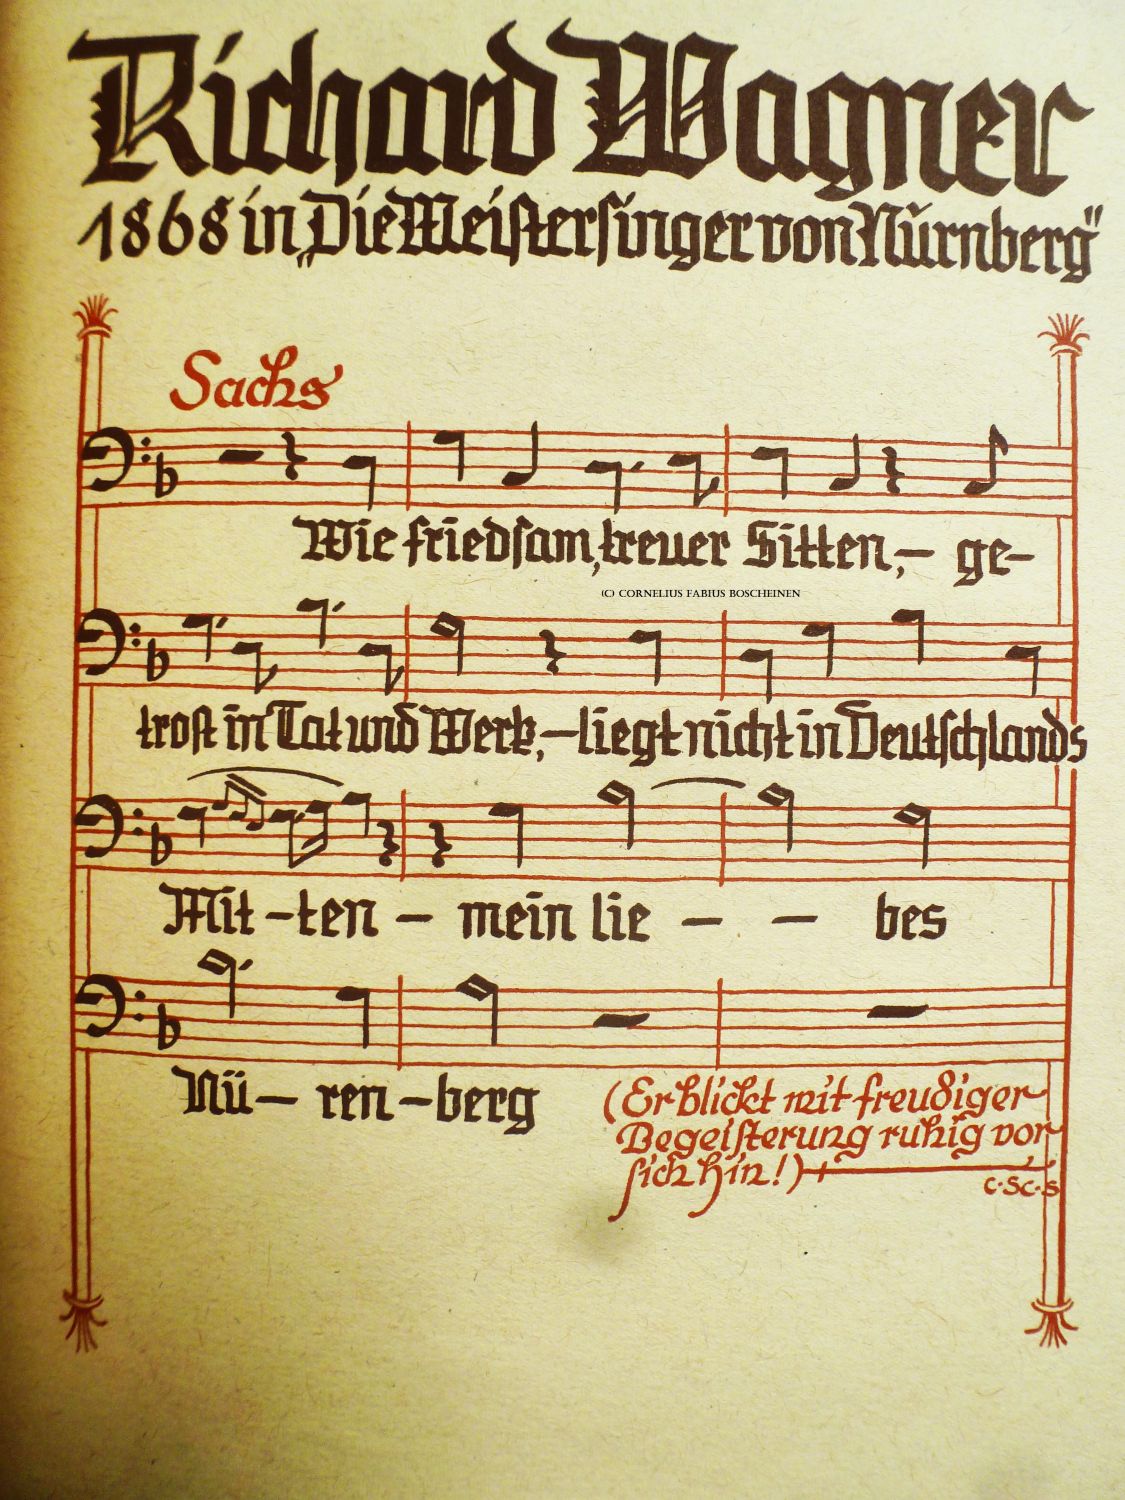 Richard Wagner
1868 in „Die Meistersinger von Nürnberg"
Sachs
Wie friedsam, treuer Sitten, – ge-
(C) CORNELIUS FABIUS BOSCHEINEN
trost in Tat und Werk, – liegt nicht in Deutschlands
Mit – ten – mein lie – – bes
Nü – ren – berg
(Er blickt mit freudiger
Begeisterung ruhig vor
sich hin!)
C·SC·S